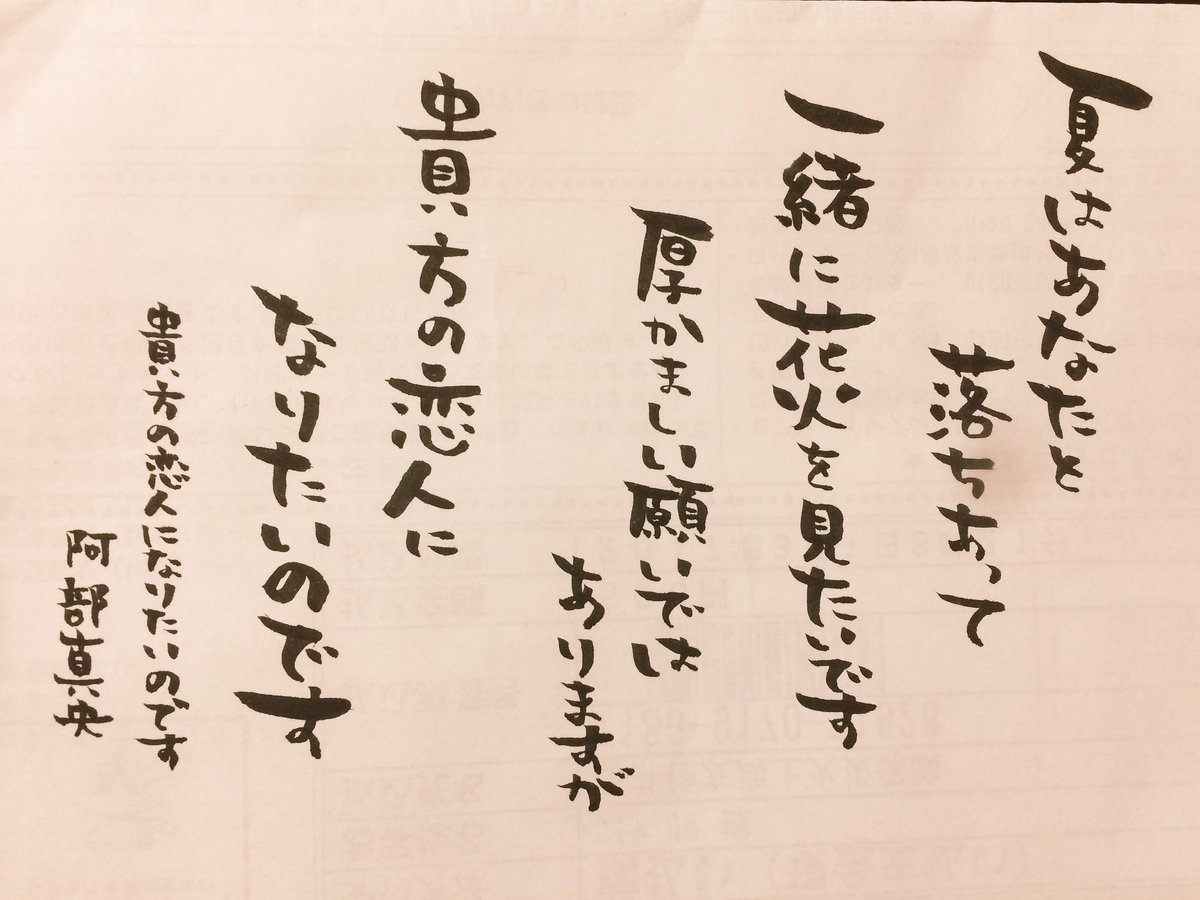 夏はあなたと
落ちあって
一緒に花火を見たいです
厚かましい願いでは
ありますが
貴方の恋人に
なりたいのです
貴方の恋人になりたいのです
阿部真央